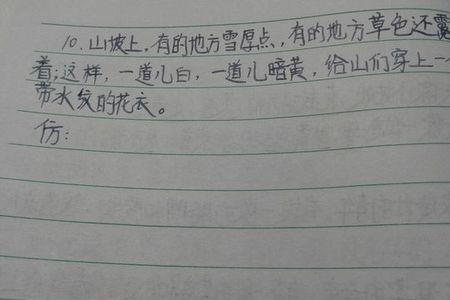 10. 山坡上,有的地方雪厚点,有的地方草色还露
着;这样,一道儿白,一道儿暗黄,给山们穿上一
带水纹的花衣。
仿: